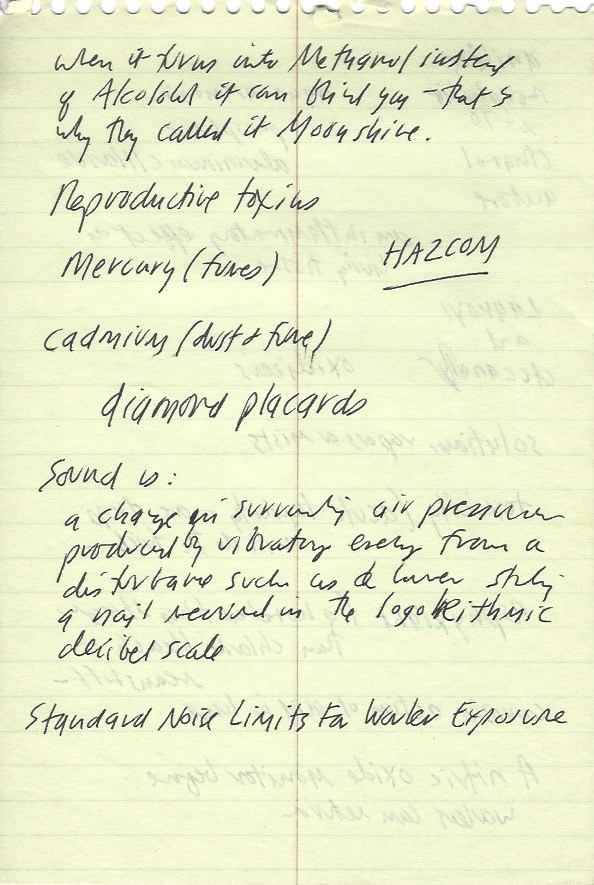 when it turns into Methanol instead
of Alcolohl it can blind you - that's
why they called it Moonshine.
Reproductive toxins
Mercury (fumes)
HAZCOM
Cadmium (dust & fume)
diamond placards
Sound is:
a change in surrounding air pressure
produced by vibratory energy from a
disturbance such as a hammer striking
a nail record in the logorithmic
decibel scale
Standard Noise Limits For Worker Exposure